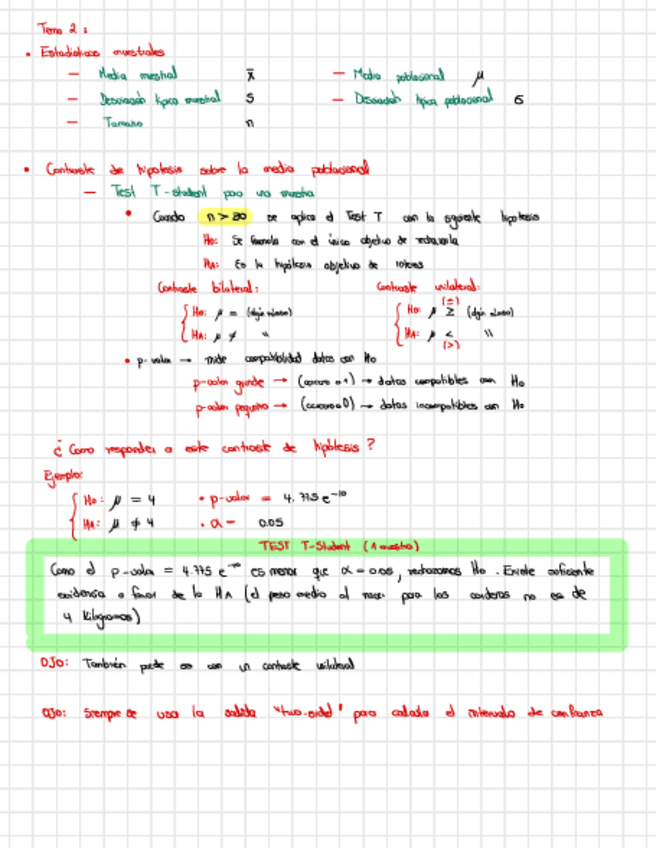 Tema 2:
• Estadísticos muestrales
— Media mestral x̄ — Media poblacional μ
— Desviación típica muestral S — Desviación típica poblacional σ
— Tamaño n
• Contraste de hipótesis sobre la media poblacional
— Test T-student para una muestra
• Cuando n > 30 se aplica el Test T con la siguiente hipótesis
H0: Se formula con el único objetivo de rechazarla
HA: Es la hipótesis objetivo de interés
Contraste bilateral: Contraste unilateral:
(≤)
H0: μ = (algún número) H0: μ ≥ (algún número)
HA: μ ≠ " HA: μ < "
(>)
• p-valor → mide compatibilidad datos con H0
p-valor grande → (cercano a 1) → datos compatibles con H0
p-valor pequeño → (cercano a 0) → datos incompatibles con H0
¿Como responder a este contraste de hipótesis?
Ejemplo:
H0: μ = 4 • p-valor = 4.775 e⁻¹⁰
HA: μ ≠ 4 • α = 0.05
TEST T-Student (1 muestra)
Como el p-valor = 4.775 e⁻¹⁰ es menor que α = 0.05, rechazamos H0. Existe suficiente
evidencia a favor de la HA (el peso medio al nacer para los corderos no es de
4 kilogramos)
OJO: También puede ser con un contraste unilateral
OJO: Siempre se usa la salida "two.sided" para calcular el intervalo de confianza